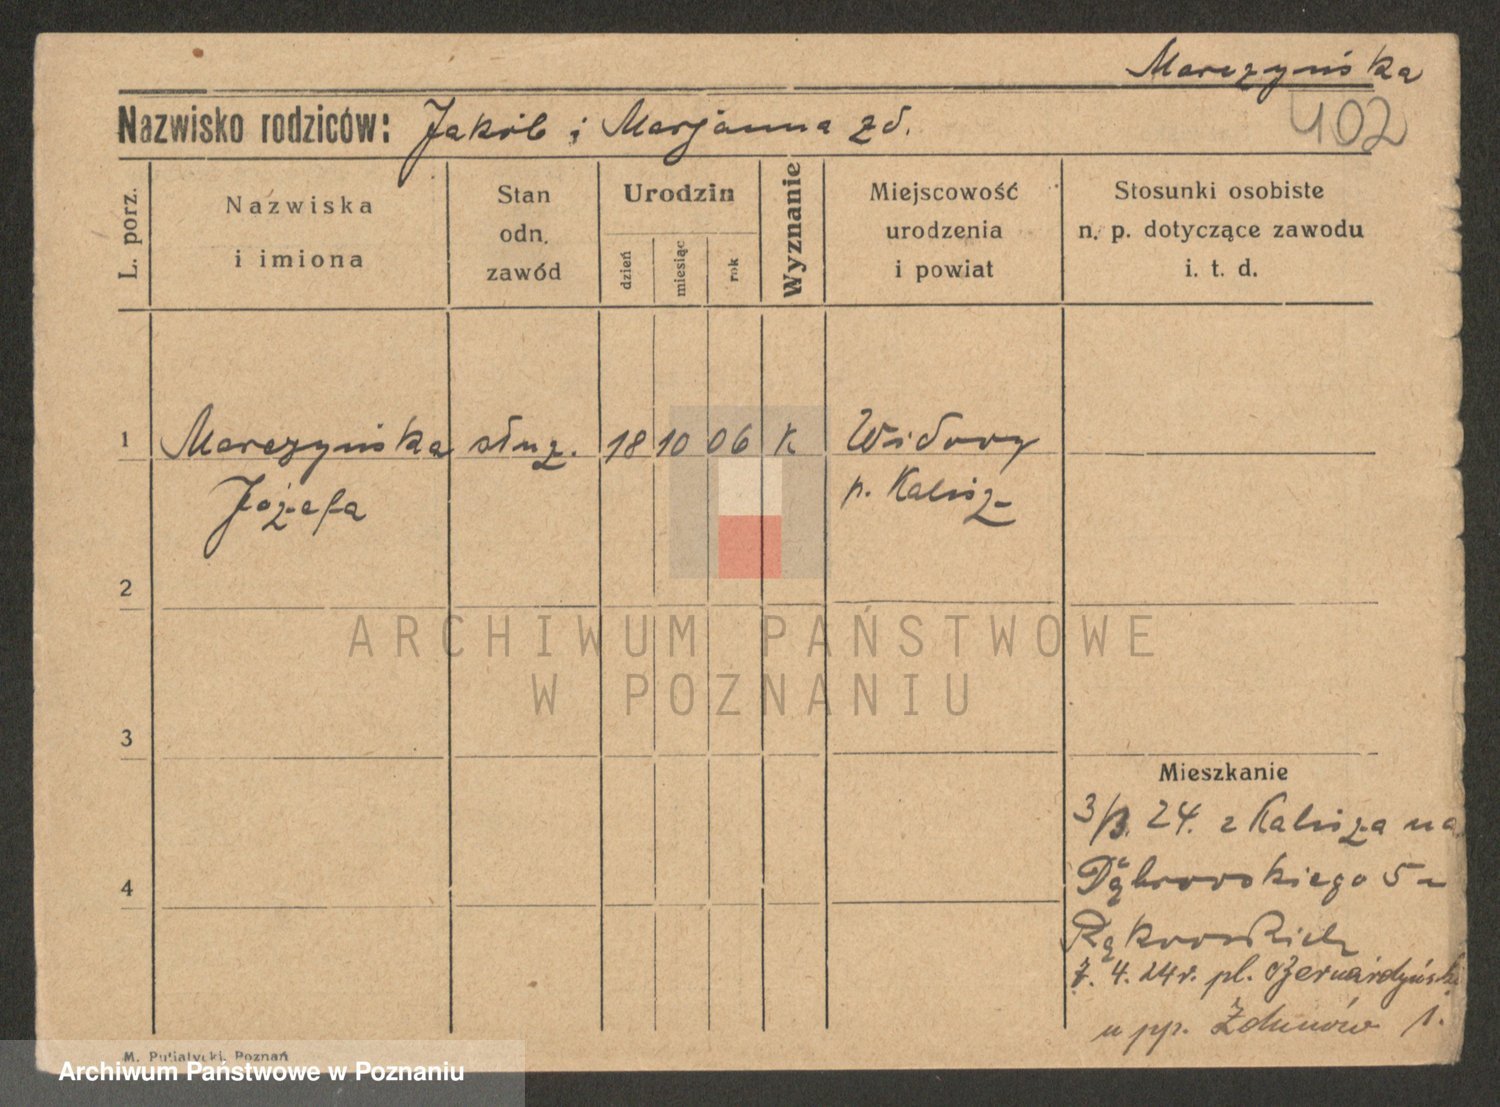 Marczyńska
402
Nazwisko rodziców: Jakób i Marjanna zd.
L. porz.
Nazwiska
i imiona
Stan
odn.
zawód
Urodzin
dzień
miesiąc
rok
Wyznanie
Miejscowość
urodzenia
i powiat
Stosunki osobiste
n. p. dotyczące zawodu
i. t. d.
1 Marczyńska służ. 18 10 06 K Widory
Józefa p. Kalisz
2
ARCHIWUM PAŃSTWOWE
W POZNANIU
3
Mieszkanie
3/3. 24. z Kalisza na
4
Dąbrowskiego 5 u
Rąkowskich
7. 4. 24 r. pl. Bernardyński
u pp. Zdunów 1.
M. Putiatycki, Poznań
Archiwum Państwowe w Poznaniu